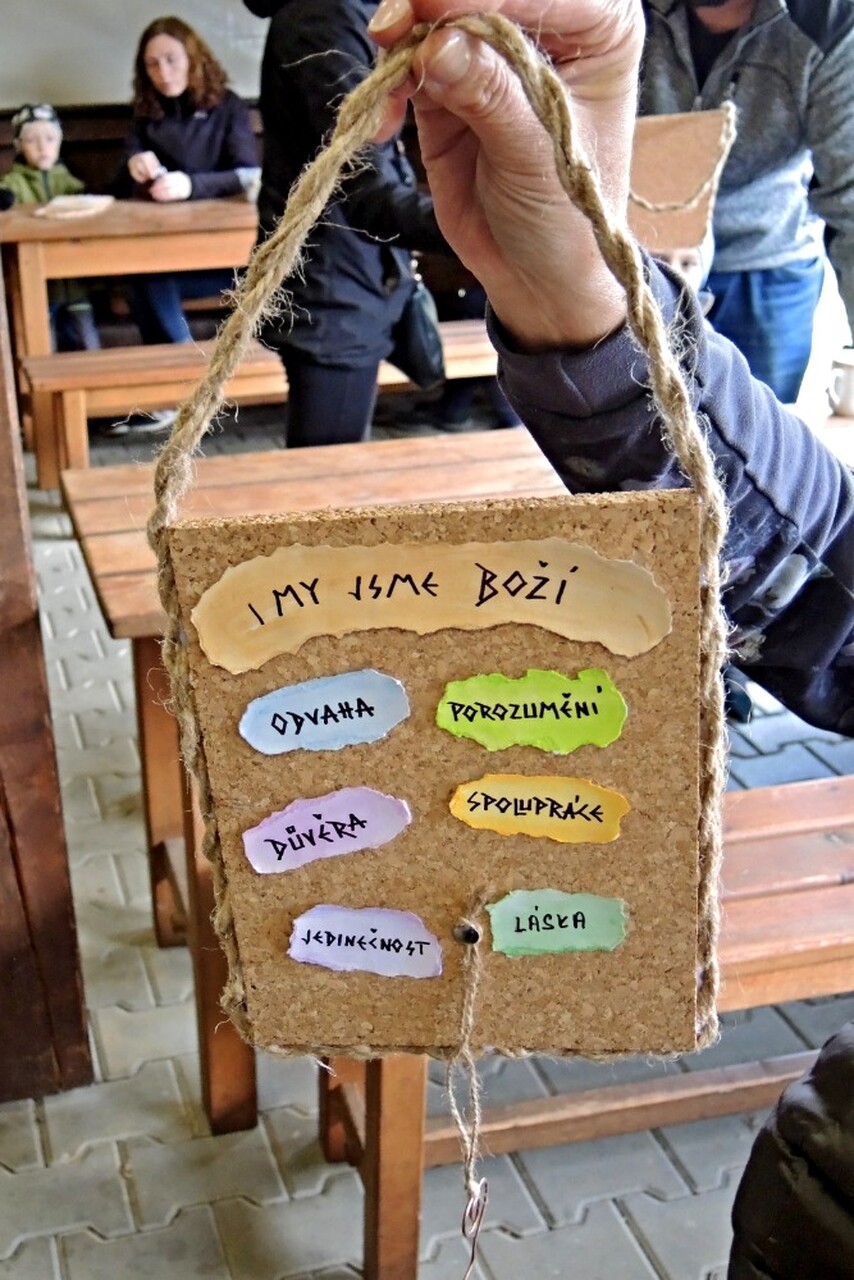 I MY JSME BOŽÍ
ODVAHA
POROZUMĚNÍ
DŮVĚRA
SPOLUPRÁCE
JEDINEČNOST
LÁSKA